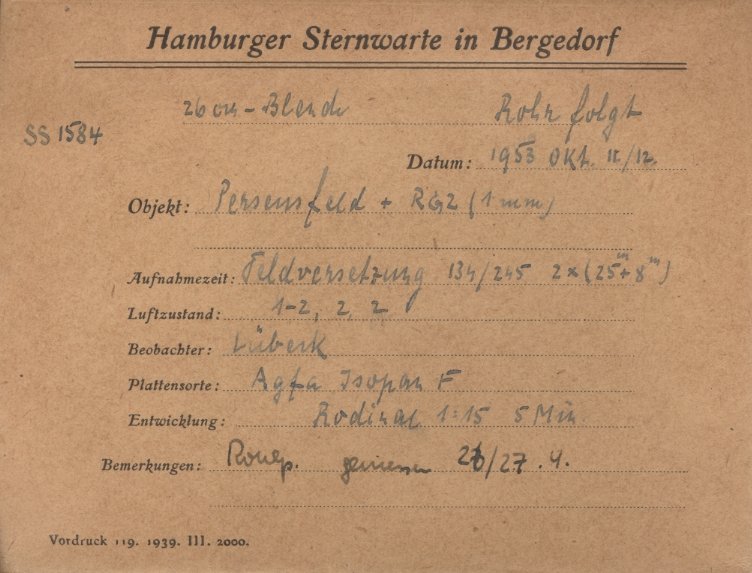 Hamburger Sternwarte in Bergedorf
26 cm - Blende Rohr folgt
SS 1584
Datum: 1953 Okt. 11/12.
Objekt: Perseusfeld + RG2 (1 mm)
Aufnahmezeit: Feldversetzung 134/245 2 x (25m + 8m)
Luftzustand: 1-2, 2, 2
Beobachter: Lübeck
Plattensorte: Agfa Isopan F
Entwicklung: Rodinal 1:15 5 Min
Bemerkungen: gemessen 26/27. 4.
Vordruck 119. 1939. III. 2000.